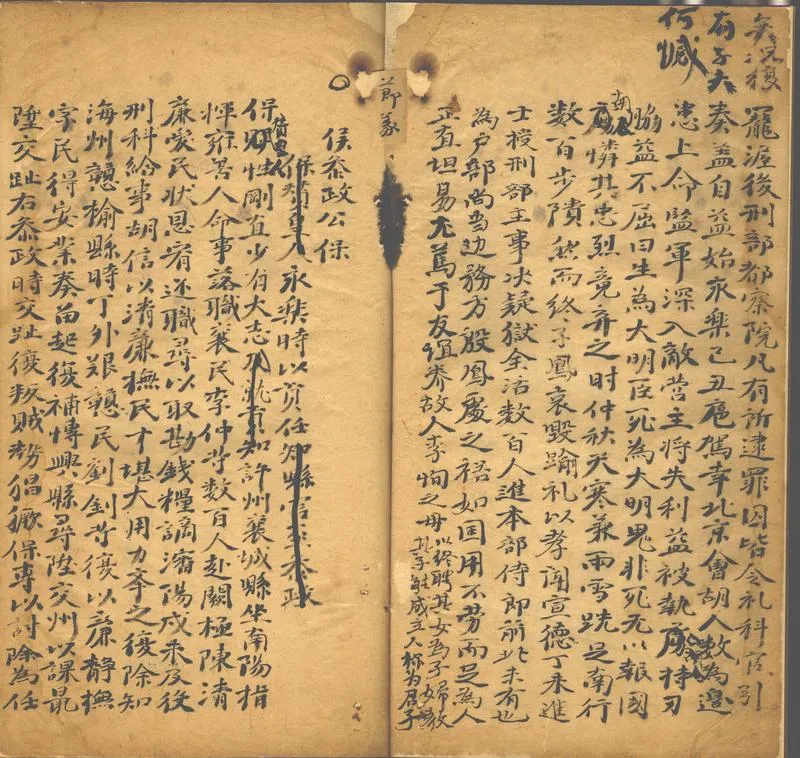 罷漄後刑部都察院凡有所逮罪囚皆令礼科官引
奏益自益始永樂己丑扈駕幸北京會胡人数為邊
患上命監軍深入敵营主將失利益被執虜持刃
脇益不屈曰生為大明臣死為大明鬼非死无以報國
虜憐其忠烈竟弃之时仲秋天寒兼雨雪跣足南行
数百步隤然而終子鳳哀毁踰礼以孝闻宣德丁未進
士授刑部主事决疑獄全活数百人進本部侍郎前此未有也
為户部尚书边務方殷鳳處之裕如国用不劳而足為人
正直坦易尤篤于友谊养故人李恂之母以终聘其女為子婦教
其子成立人称为君子
有子
何憾
胡
節義
侯叅政公保
保贊皇人永樂時以
贊皇人
保性剛直少有大志知許州襄城縣坐南陽指
揮雍害人命事落職襄民李仲等数百人赴闕極陳清
廉愛民狀恩宥还職尋以取勘錢糧謫瀋陽戍未及後
刑科給事胡信以清廉撫民才堪大用力荐之復除知
海州贛榆縣時丁外艱贛民劉釗等復以廉静撫
字民得安業奏留起復補愽興縣尋陞交州以課最
陞交趾右叅政時交趾復叛賊势猖獗保專以討除為任